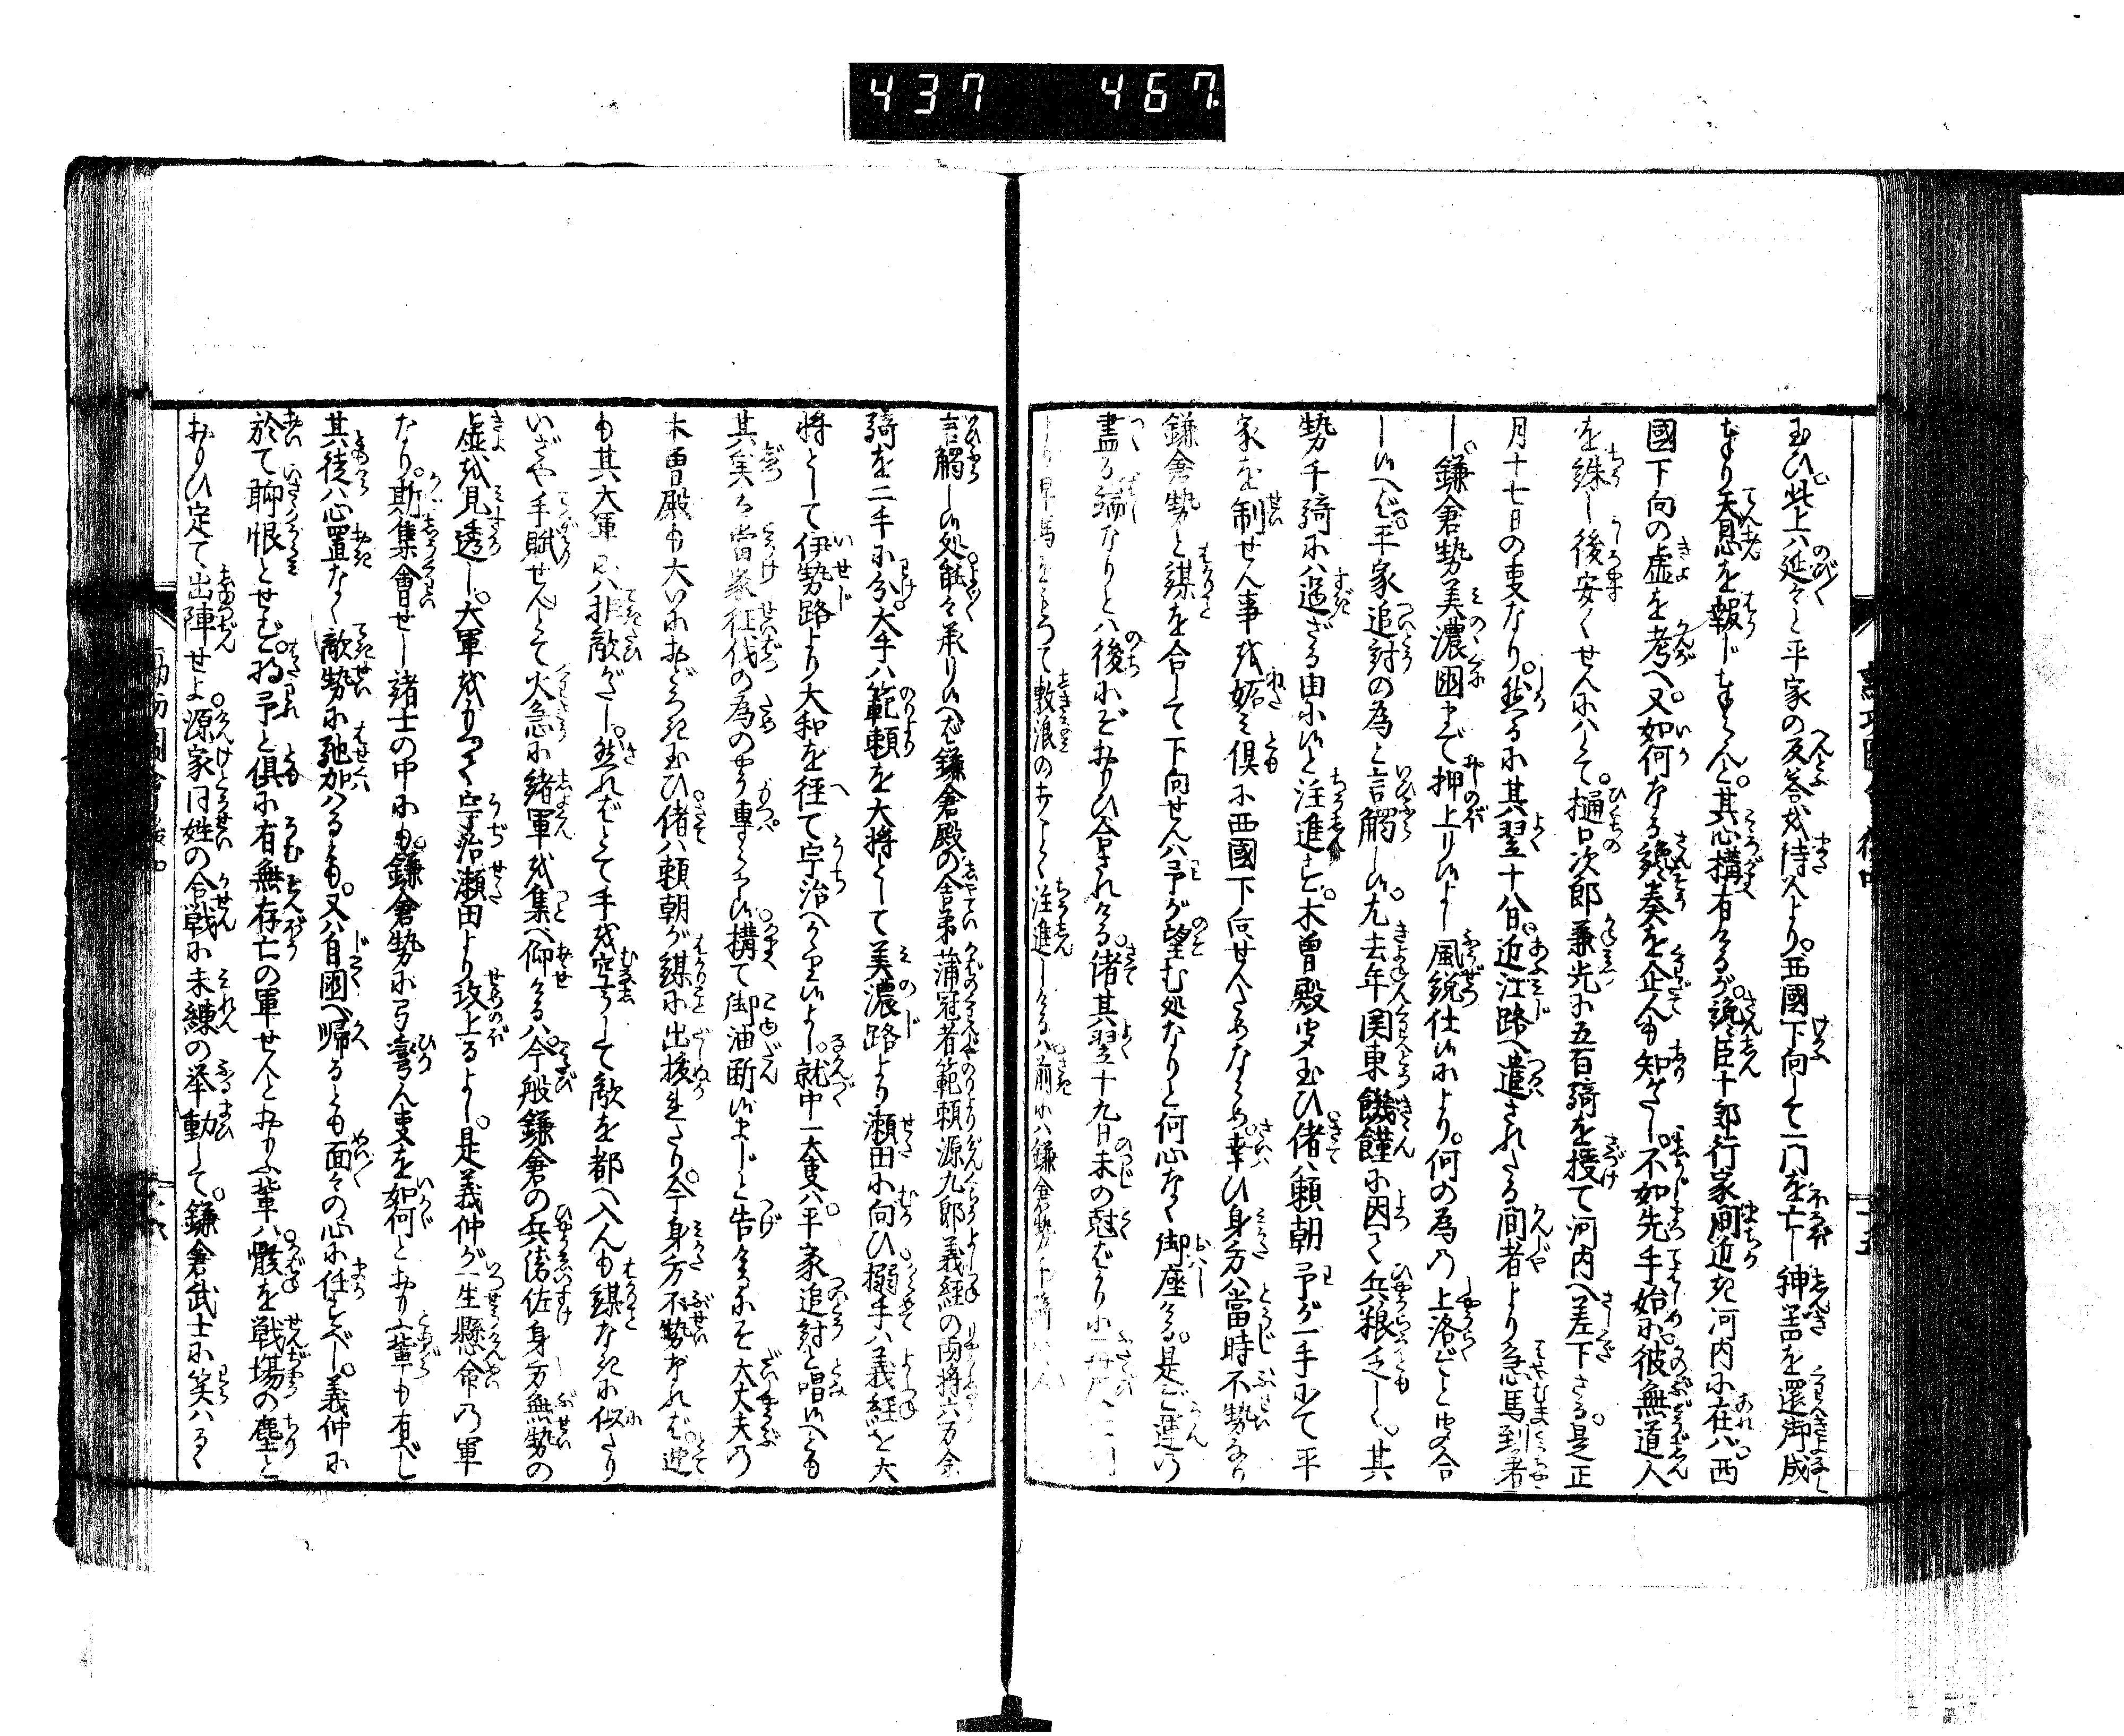 437 467
玉ひ此上ハ延々と平家の反答を待んより。西國下向して一門を亡し神器を還御成
まゐり天恩を報じまゐらんと。其心構有けるが。讒臣十郎行家間近き河内に在ハ。西
國下向の虚を考へ又。如何なる讒奏を企んも知がたし。不如先手始に彼無道人
を誅し後安くせんにハとて。樋口次郎兼光に五百騎を授て河内へ差下さる。是正
月十七日の事なり。然るに其翌十八日。近江路へ遣されたる間者より急馬到著
し。鎌倉勢美濃國まで押上りいよし風説仕いにより。何の為の上洛ぞと問合
しいへど。平家追討の為と言觸しい。尤去年関東饑饉に因て兵粮乏しく。其
勢千騎にハ過ざる由にいと注進す。木曽殿聞玉ひ偖ハ頼朝予が一手にて平
家を制せん事を妬み倶に西國下向せんためならめ。幸ひ身方ハ當時不勢なり
鎌倉勢と謀を合して下向せんハ予が望む処なりと何心なく御座ける。是ぞ運の
盡る端なりとハ後にぞおもひ合されける。偖其翌十九日未の尅ばかりに
早馬 て敷浪の 注進しけるハ前にハ鎌倉勢千騎
言觸しい処能々承りいへど鎌倉殿の舎弟蒲冠者範頼源九郎義経の両将六万余
騎を二手に分大手ハ範頼を大将として美濃路より瀬田に向ひ搦手ハ義経を大
将として伊勢路より大和を径て宇治へかゝりいよし。就中一大事ハ。平家追討と唱いへども
其実ハ當家征伐の為のやう専らにい構て御油断いまじと告けるにぞ大丈夫の
木曽殿も大いにおどろき玉ひ偖ハ頼朝が謀に出抜れたり。今身方不勢なれバ迚
も其大軍にハ非敵がたし。然れバとて手を空うして敵を都へ入んも謀なきに似たり
いざや手賦せんとて火急に緒軍を集へ仰けるハ。今般鎌倉の兵衛佐身方無勢の
虚を見透し。大軍をもつて宇治瀬田より攻上るよし。是義仲が一生懸命の軍
なり。斯集會せし諸士の中にも。鎌倉勢に弓彎ん事を如何とおもふ輩も有べし
其徒ハ心置なく敵勢に馳加ハるとも。又ハ自國へ帰るとも面々の心に任すべし。義仲に
於て聊恨とせじ。將予と倶に有無存亡の軍せんとおもふ輩ハ。骸を戦場の塵と
おもひ定て出陣せよ。源家同姓の合戦に未練の挙動して。鎌倉武士に笑ハるゝ